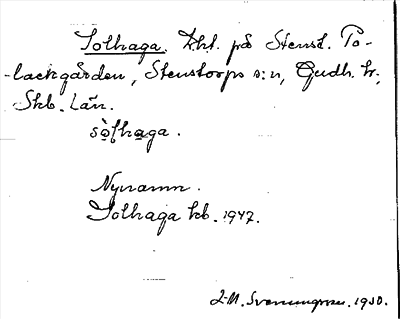 Solhaga. Lht. på Stenst. To-
-lackgården, Stenstorps s:n, Gudh. hr,
Skb. Län.
so̱lhaga.
Nynamn.
Solhaga kb. 1947.
1930.